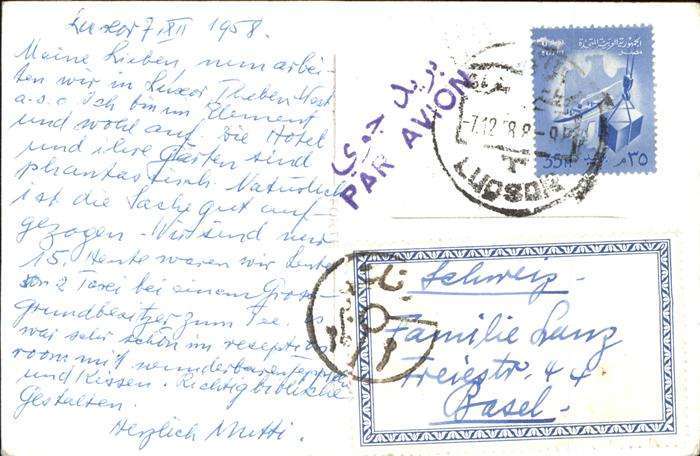 Luxor 7. XII 1958.
Meine Lieben nun arbei-
ten wir in Luxor Theben-West
a.s.o. Ich bin im Element
und wohl auf. Die Hotel
und ihre Gärten sind
phantastisch. Natürlich
ist die Sache gut auf-
gezogen. Wir sind nur
15. Heute waren wir
2 Taxi bei einem Gross-
grundbesitzer zum Tee. Es
war sehr schön im reception
room mit wunderbaren Teppichen
und Kissen. Richtig biblische
Gestalten.
Herzlich Mutti.
بريد جوي
PAR AVION
الجمهورية العربية المتحدة
مصر
35
٣٥ م
-7.12.58.8-9
LUQSOR
Schweiz.
Familie Lanz
Freiestr. 44
Basel.